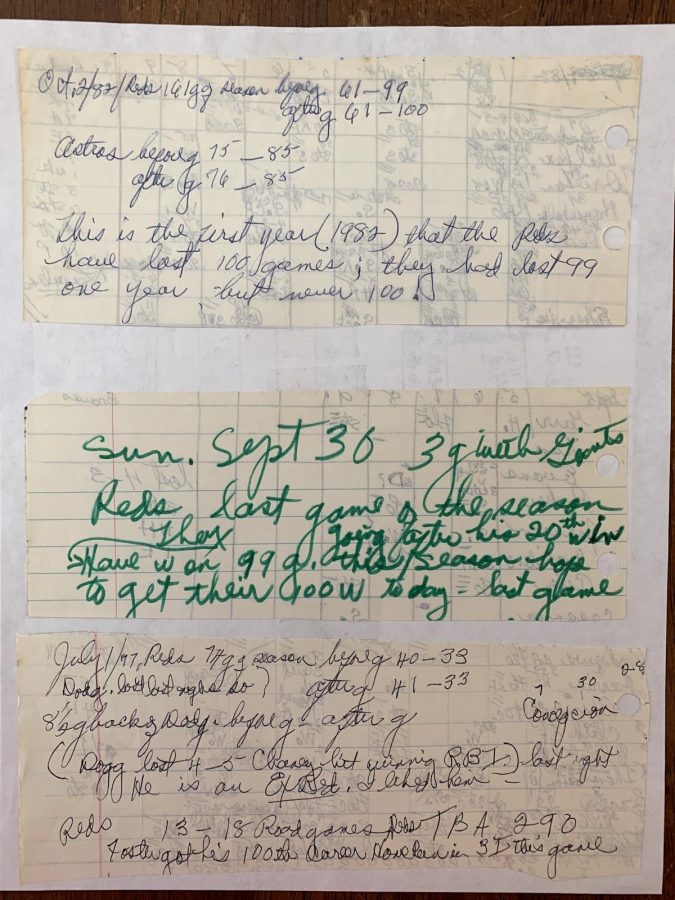 Oct, 2/82/Reds 161 gg season before g 61-99
after g 61-100
Astros before g 75-85
after g 76-85
This is the first year (1982) that the Reds
have lost 100 games; they had lost 99
one year, but never 100!
Sun. Sept 30 3 g with Giants
Reds last game of the season
They going after his 20th win
Have won 99 g. this season hope
to get their 100 W today = last game
July 1/77, Reds 74 gg season before g 40-33
Dodg. lost last night so after g 41-33
8½ g back of Dodg. before g - after g
7 30 2-8
Concepcion
(Dogg lost 4-5 Chaney hit winning RBI.) last night
He is an Ex Red. I liked him -
Reds 13-18 Road games Reds TBA 290
Foster got his 100th career Home Run in 3 I this game